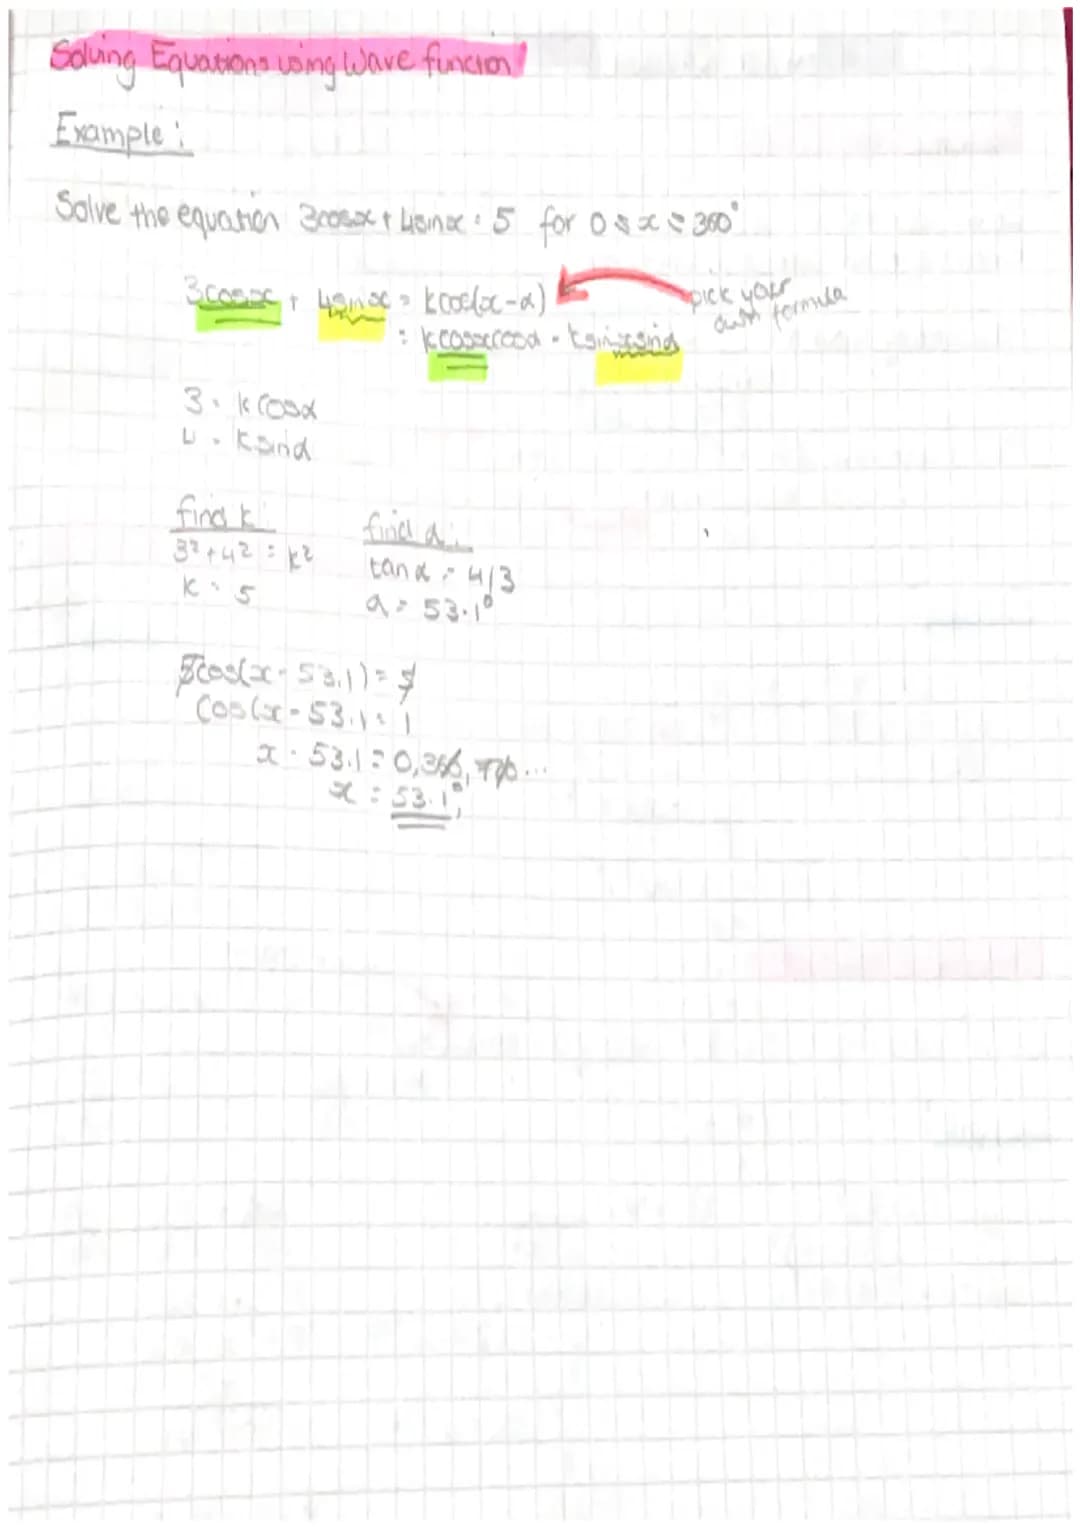 Solving Equations using Wave function
Example:
Solve the equation 3cosx + 4sinx = 5 for 0 ≤ x ≤ 360°
3cosx + 4sinx = kcos(x-α)
pick your own formula
= kcosxcosα - ksinxsinα
3 = kcosα
4 = ksinα
find k:
3² + 4² = k²
k = 5
find α:
tanα = 4/3
α = 53.1°
5cos(x - 53.1) = 5
cos(x - 53.1 = 1
x - 53.1 = 0, 360, 720...
x = 53.1°,